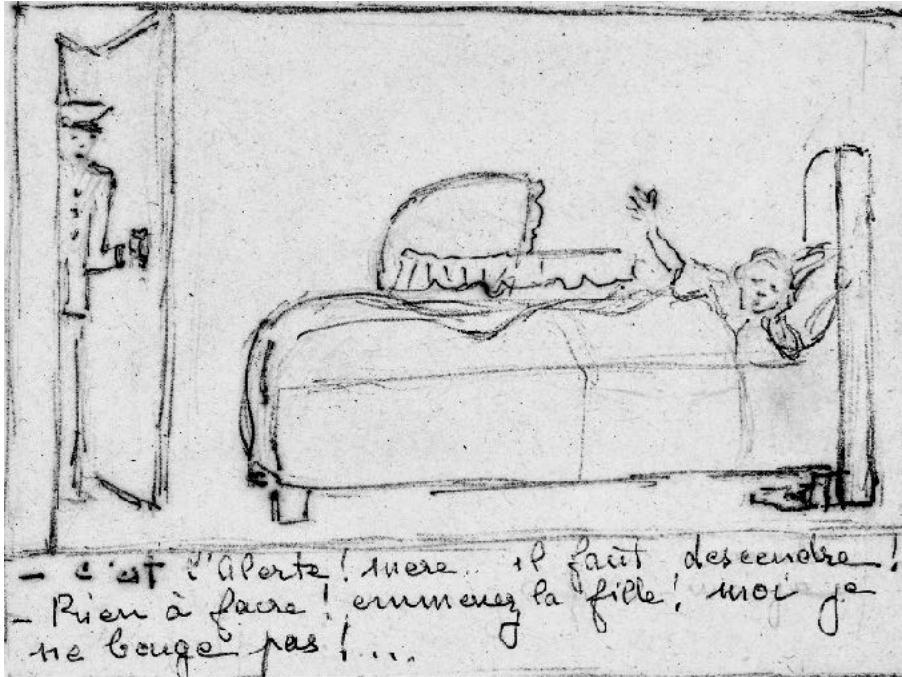 - c'est l'Alerte! mere.. il faut descendre!
- Rien à faire! emmenez la fille! moi je
ne bouge pas!...